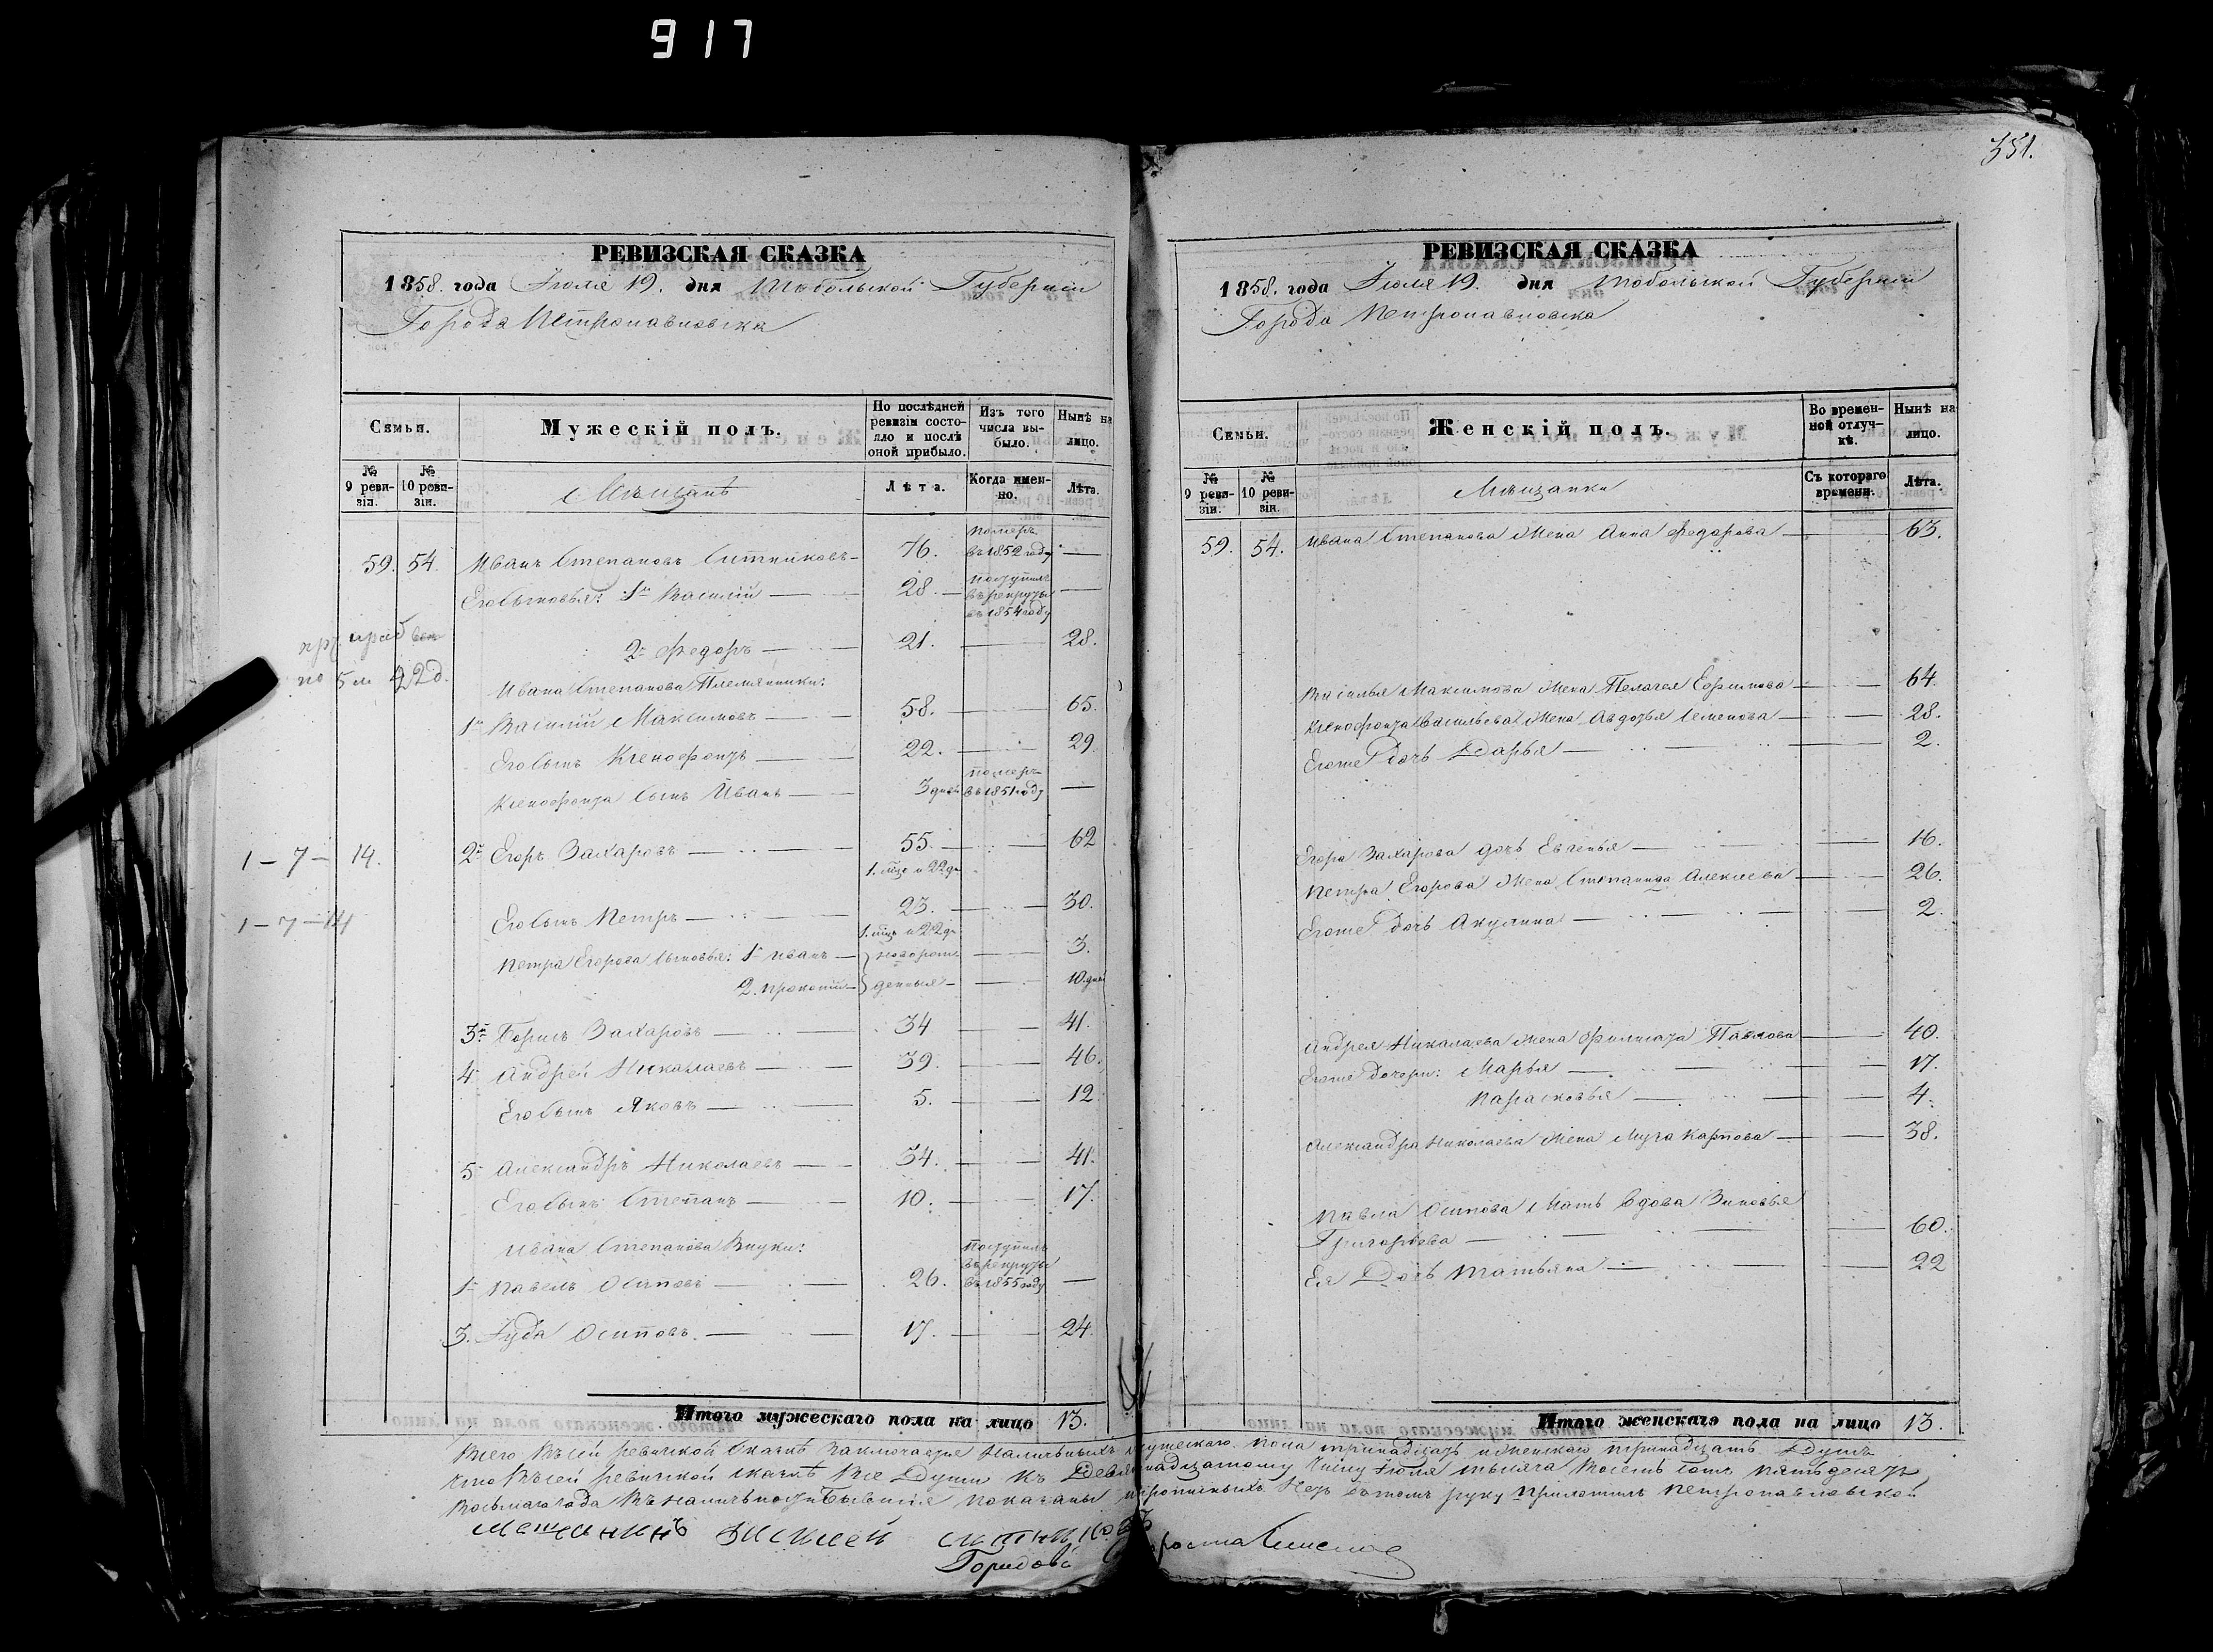 917
351.
РЕВИЗСКАЯ СКАЗКА
1858. года Іюля 19. дня Тобольской Губерніи
Города Петропавловска
Семьи.
Мужескій полъ.
По послѣдней ревизіи состояло и послѣ оной прибыло.
Изъ того числа выбыло.
Нынѣ на лицо.
№ 9 ревизіи.
№ 10 ревизіи.
Мѣщанѣ
Лѣта.
Когда именно.
Лѣта.
59. 54. Иванъ Степановъ Ситниковъ 76. померъ въ 1852 году —
Его сыновья: 1й Василій — 28. — поступилъ въ рекруты въ 1854 году —
2й Федоръ — 21. — 28.
по 5 м 22 д.
Ивана Степанова Племянники:
1й Василий Максимовъ — 58. — 65.
Его сынъ Ксенофонтъ — 22. — 29.
Ксенофонта сынъ Иванъ — 3 дней померъ въ 1851 году —
1 – 7 – 14. 2й Егоръ Захаровъ — 55. — 62
1. мца и 22 дн
1 – 7 – 14 Его сынъ Петръ — 23. — 30.
1. мца и 22 дн
Петра Егорова сыновья: 1й Иванъ — новорож — 3.
2. Прокопій — денныя — 10. дней
3й Борисъ Захаровъ — 34 — 41.
4 Андрей Николаевъ — 39. — 46.
Его сынъ Яковъ — 5. — 12.
5 Александръ Николаевъ — 34. — 41.
Его сынъ Степанъ — 10. — 17.
Ивана Степанова Внуки:
1й Павелъ Осиповъ — 26. поступилъ въ рекруты въ 1855 году —
3. Іуда Осиповъ. — 17. — 24.
Итого мужескаго пола на лицо 13.
РЕВИЗСКАЯ СКАЗКА
1858. года Іюля 19. дня Тобольской Губерніи
Города Петропавловска
Семьи.
Женскій полъ.
Во временной отлучкѣ.
Нынѣ на лицо.
№ 9 ревизіи.
№ 10 ревизіи.
Мѣщанки
Съ котораго времени.
Лѣта.
59. 54. Ивана Степанова Жена Анна Федорова — 63.
Василья Максимова Жена Пелагея Ефимова — 64.
Ксенофонта Васильева Жена Авдотья Семенова — 28.
Егоже дочь Дарья — 2.
Егора Захарова дочь Евгенья — 16.
Петра Егорова Жена Степанида Алексеева — 26.
Егоже дочь Акулина — 2.
Андрея Николаева Жена Филисата Павлова — 40.
Егоже Дочери: Марья — 17.
Парасковья — 4.
Александра Николаева Жена Луга Карпова — 38.
Павла Осипова Мать вдова Зиновья
Григорьева — 60.
Ея Дочь Татьяна — 22
Итого женскаго пола на лицо 13.
Всего въ сей ревизской сказкѣ заключается наличныхъ мужескаго пола тринадцать и женскаго тринадцать Душъ
что въ сей ревизской сказкѣ все Души къ девятнадцатому числу Іюля месяца восемь сотъ пятьдесятъ
восьмаго года въ наличности бывшія показаны и прописныхъ нетъ въ томъ руку приложилъ Петропавловской
мещанинъ Ситниковъ
Староста